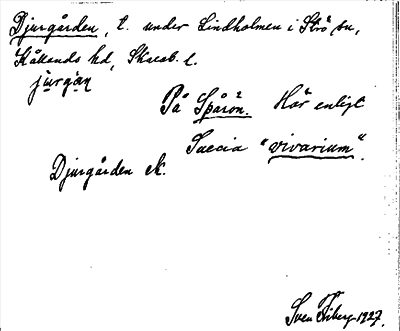 Djurgården, t. under Lindholmen i Strö sn,
Kållands hd, Skarab. l.
jurgan
På Spåron. Här enligt
Suecia "vivarium".
Djurgården K.
Sven Fiberg 1927.